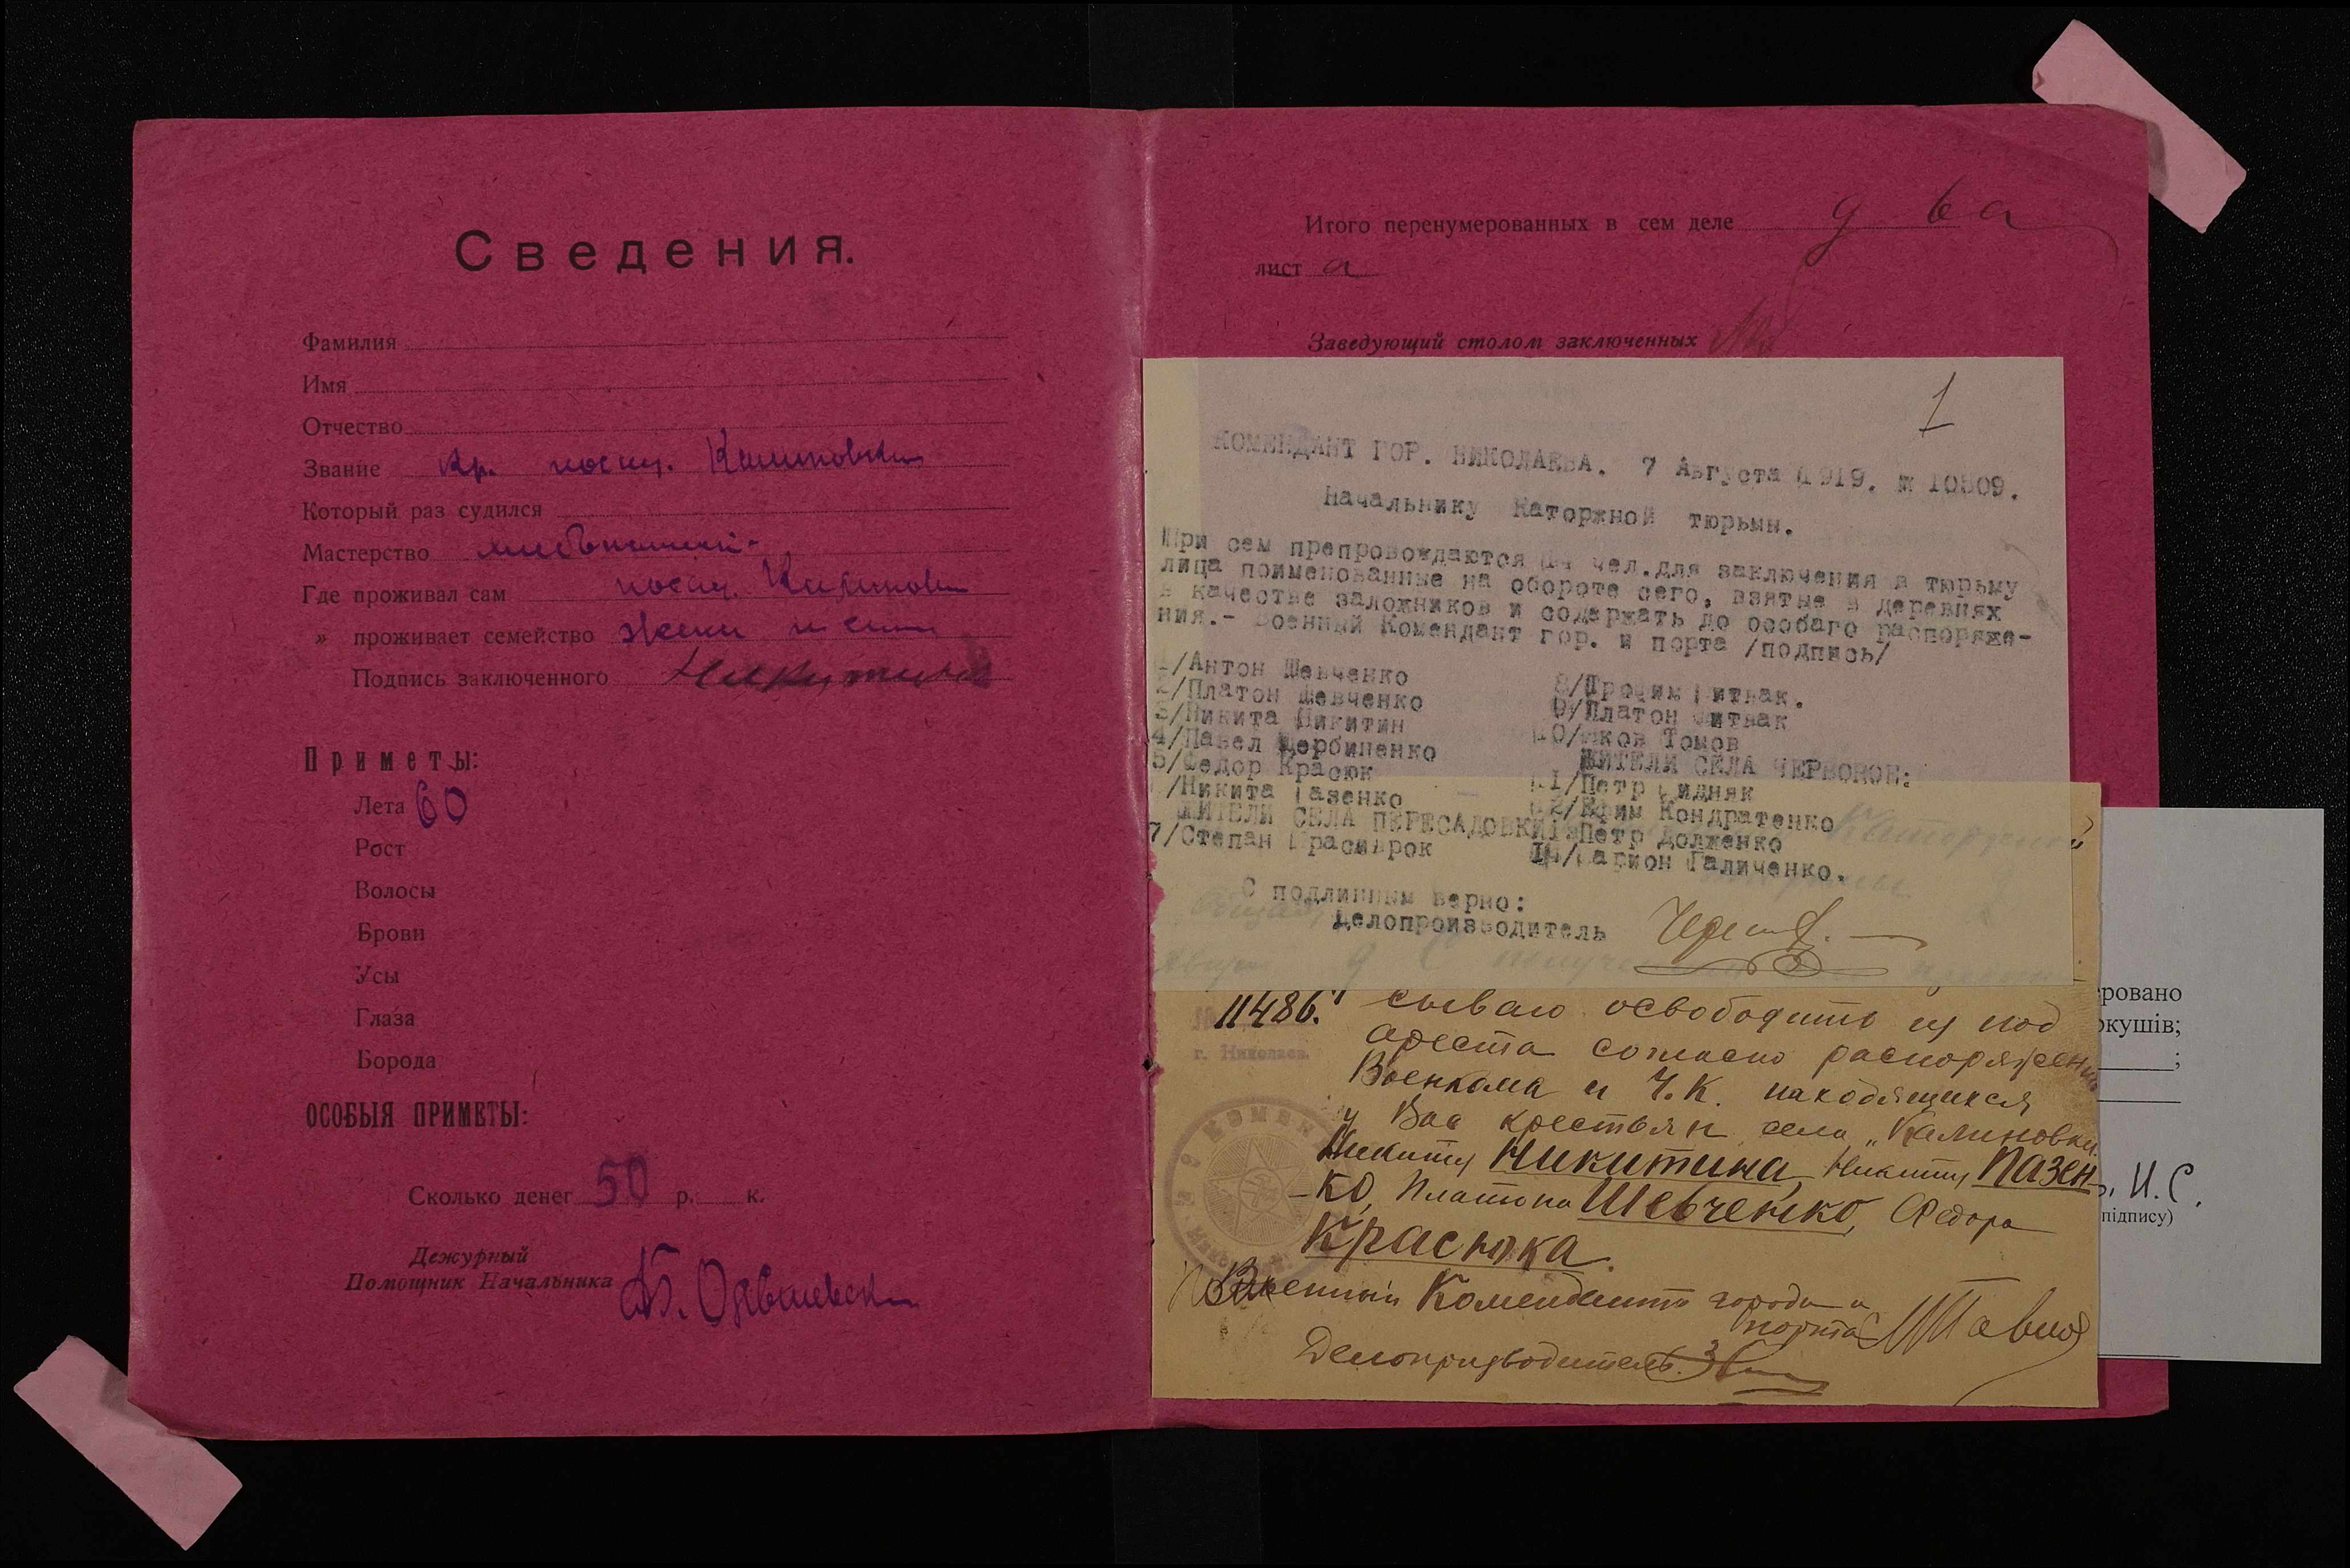 Сведения.
Фамилия
Имя
Отчество
Звание Кр. посел. Калиновки
Который раз судился
Мастерство
Где проживал сам посел. Калиновки
» проживает семейство жена и сын
Подпись заключенного Никитин
Приметы:
Лета 60
Рост
Волосы
Брови
Усы
Глаза
Борода
ОСОБЫЯ ПРИМЕТЫ:
Сколько денег 50 р. к.
Дежурный
Помощник Начальника
Итого перенумерованных в сем деле два
лист а
Заведующий столом заключенных
1
КОМЕНДАНТ ГОР. НИКОЛАЕВА. 7 Августа 1919. № 10509.
Начальнику Каторжной тюрьмы.
При сем препровождаются 14 чел.для заключения в тюрьму
лица поименованные на обороте сего, взятые в деревнях
в качестве заложников и содержать до особаго распоряже-
ния.- Военный Комендант гор. и порта /подпись/
1/Антон Шевченко
2/Платон Шевченко
3/Никита Никитин
4/Павел Щербиненко
5/Федор Красюк
/Никита Пазенко
ЖИТЕЛИ СЕЛА ПЕРЕСАДОВКИ
7/Степан
8/Трофим Литвак.
9/Платон Литвак
10/Яков Томов
ЖИТЕЛИ СЕЛА ЧЕРВОНОЕ:
11/Петр Бидняк
12/Ефим Кондратенко
13/Петр Долженко
14/Ларион Галиченко.
С подлинным верно:
Делопроизводитель
11486. сываю освободить из под
ареста согласно распоряжению
Военкома и Ч.К. находящихся
у Вас крестьян села „Калиновки
Никиту Никитина, Никиту Пазен-
-ко, Платона Шевченко, Федора
Красюка.
Военный Комендант города и
порта
Делопроизводитель
г. Николаев.
ровано
ркушів;
;
И.С.
підпису)